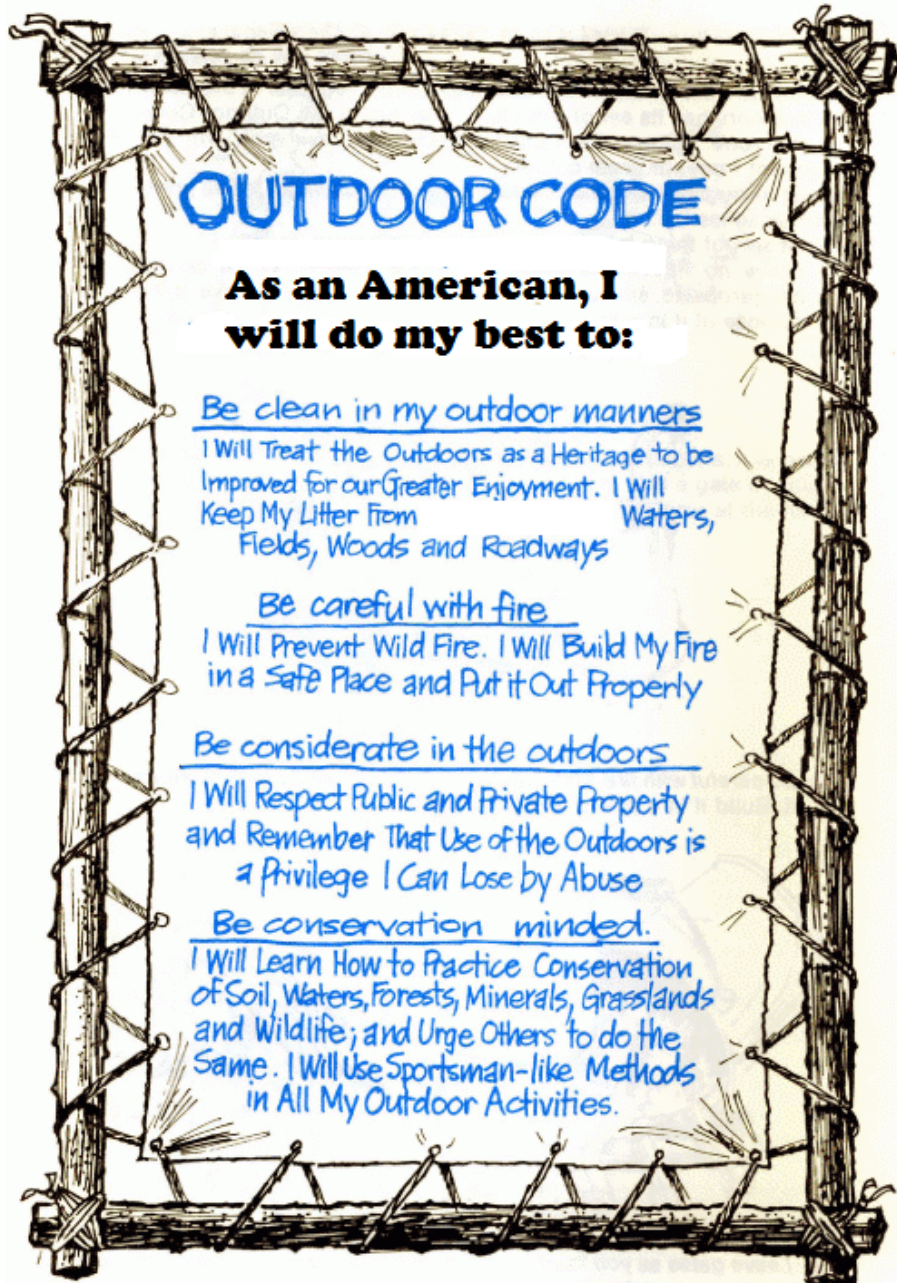 OUTDOOR CODE
As an American, I
will do my best to:
Be clean in my outdoor manners
I Will Treat the Outdoors as a Heritage to be
Improved for our Greater Enjoyment. I Will
Keep My Litter From Waters,
Fields, Woods and Roadways
Be careful with fire
I Will Prevent Wild Fire. I Will Build My Fire
in a Safe Place and Put it Out Properly
Be considerate in the outdoors
I Will Respect Public and Private Property
and Remember That Use of the Outdoors is
a Privilege I Can Lose by Abuse
Be conservation minded.
I Will Learn How to Practice Conservation
of Soil, Waters, Forests, Minerals, Grasslands
and Wildlife; and Urge Others to do the
Same. I Will Use Sportsman-like Methods
in All My Outdoor Activities.